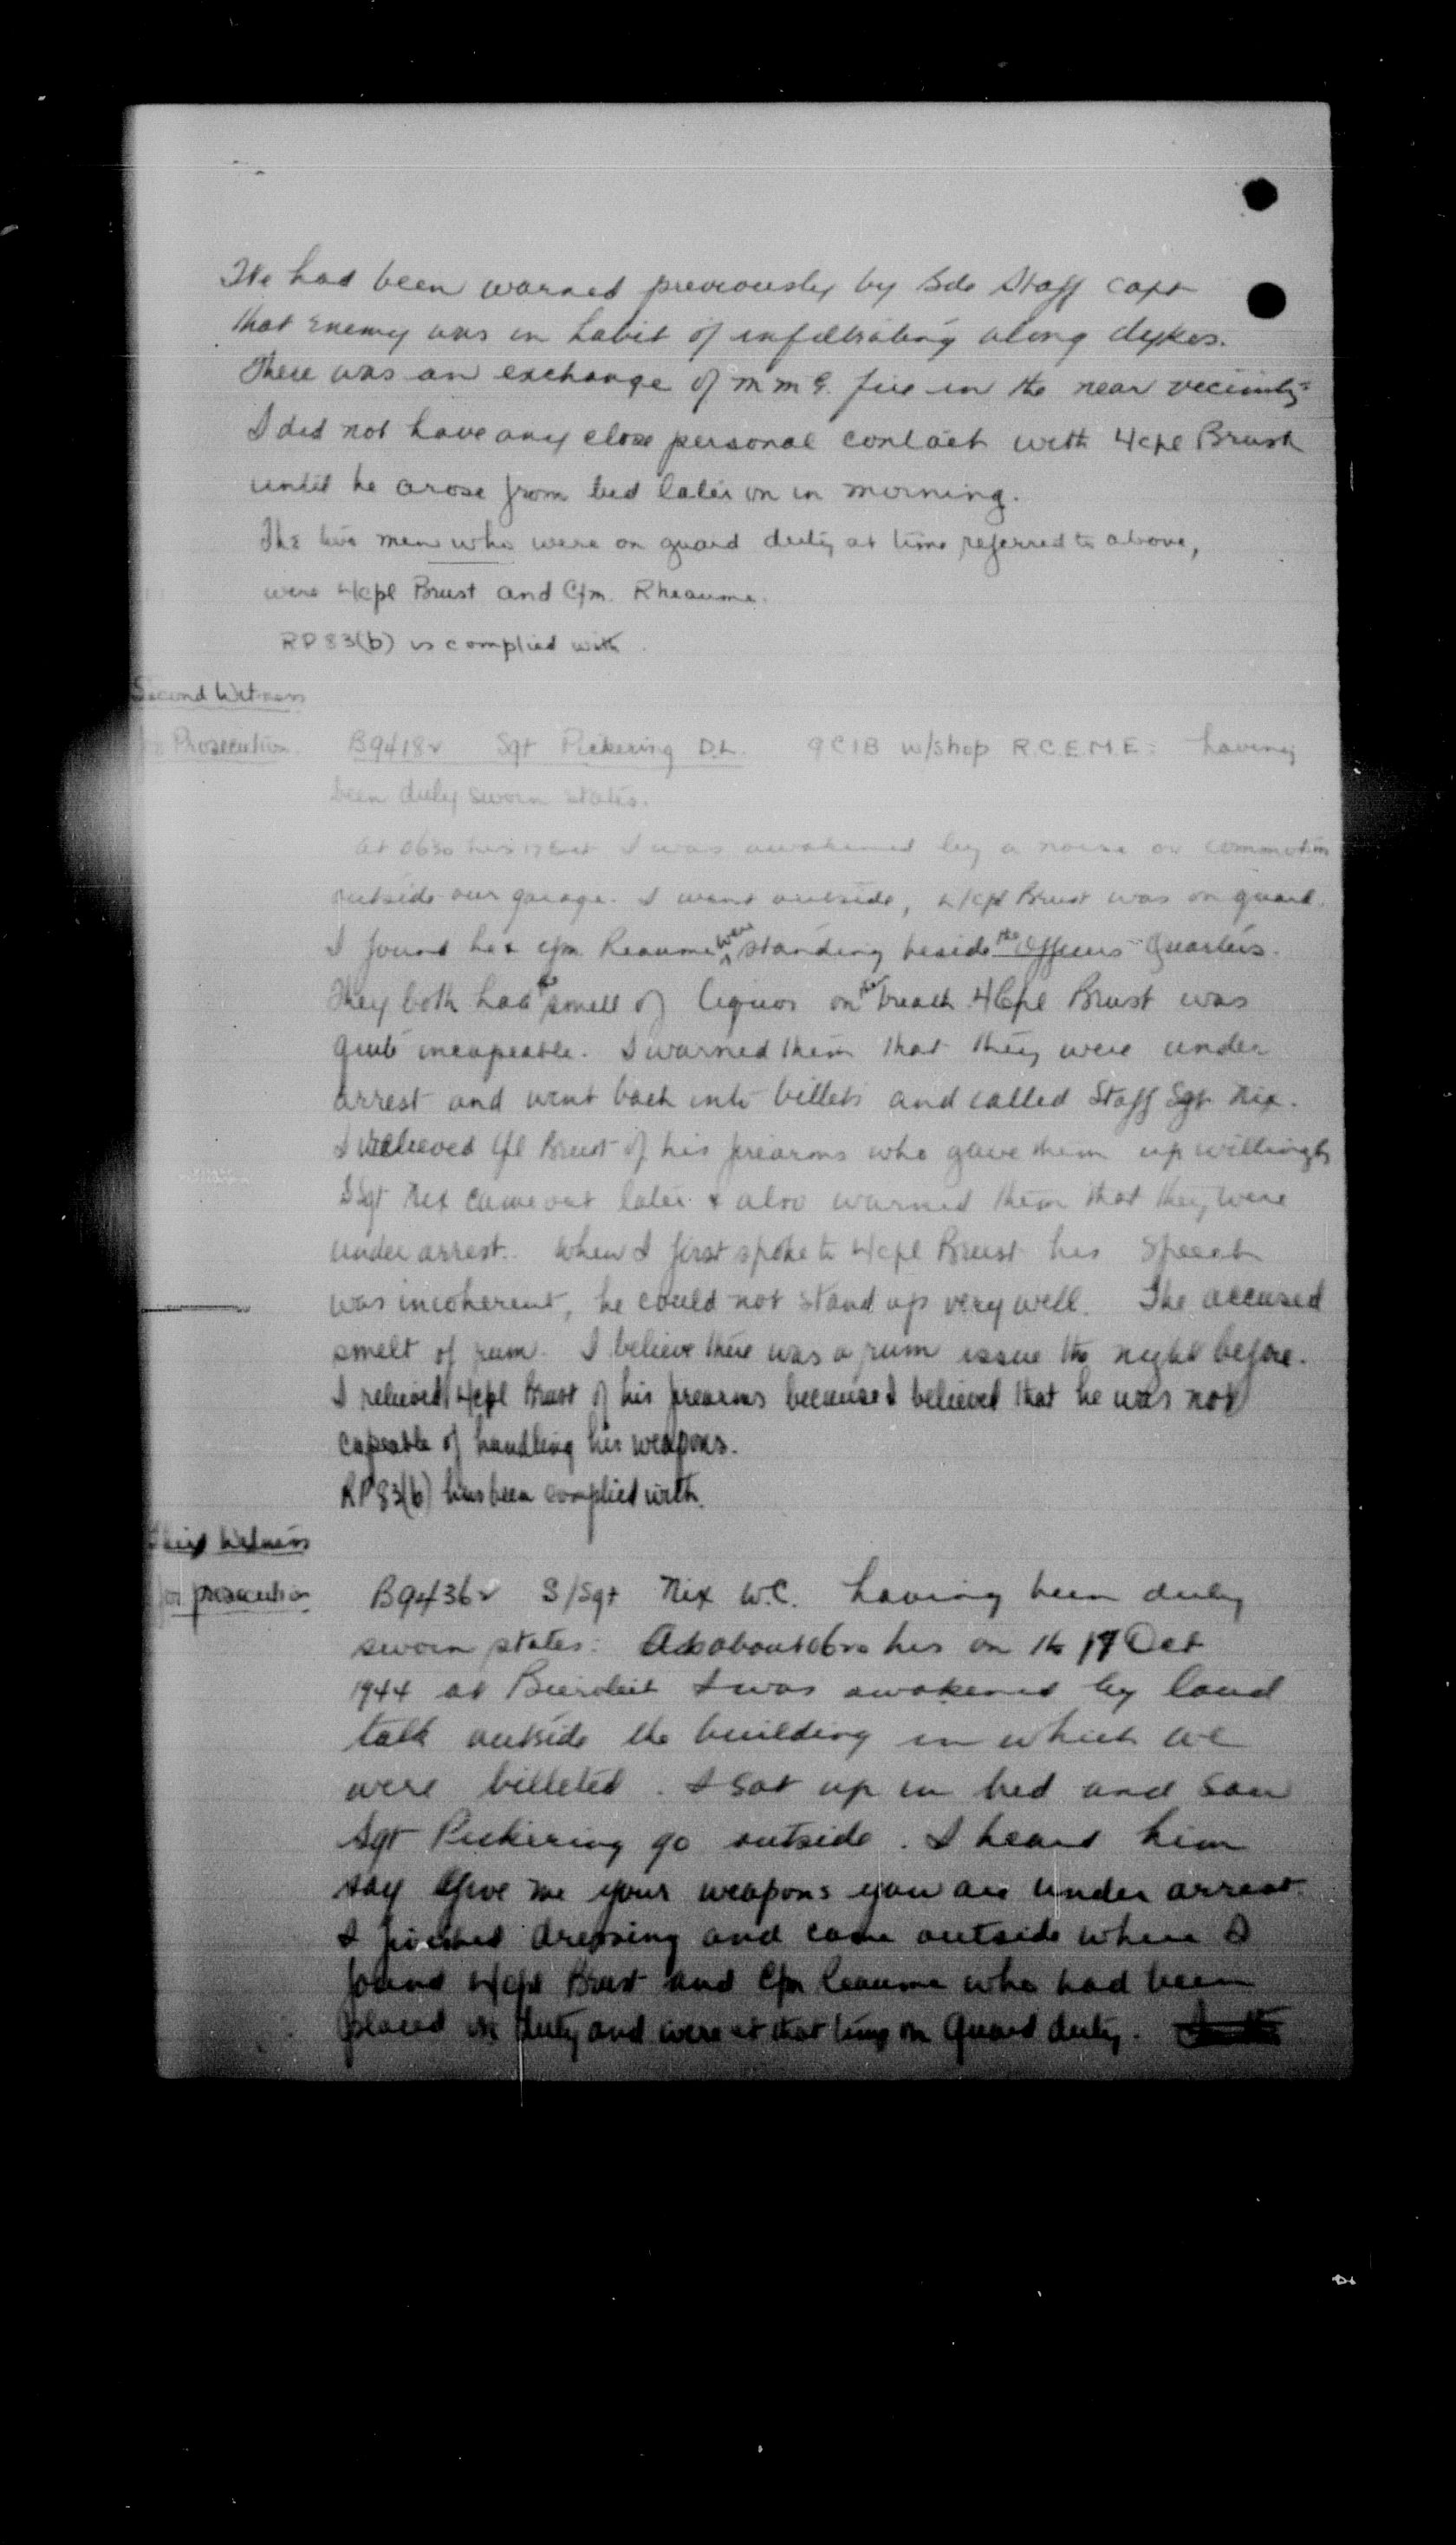 We had been warned previously by Bde Staff Capt
that Enemy was in habit of infiltrating along dykes.
There was an exchange of M M G. fire in the near vecinity
I did not have any close personal contact with L/cpl Brust
until he arose from bed later on in morning.
The two men who were on guard duty at time referred to above,
were L/cpl Brust and Cfn. Rheaume.
RP 83(b) is complied with.
Second Witness
Prosecution. B94182 Sgt Pickering D.L. 9 CIB w/shop R.C.E.M.E: having
been duly sworn states.
At 0630 hrs 17 Oct I was awakened by a noise or commotion
outside our garage. I went outside, L/cpl Brust was on guard.
I found he & cfn Reaume were standing beside the Officers Quarters.
They both had the smell of liquor on breath L/Cpl Brust was
quite incapeable. I warned them that they were under
arrest and went back into billets and called Staff Sgt Nix.
I relieved Cpl Brust of his firearms who gave them up willingly
S/Sgt Nix came out later & also warned them that they were
under arrest. When I first spoke to L/cpl Brust his speech
was incoherent, he could not stand up very well. The accused
smelt of rum. I believe there was a rum issue the night before.
I relieved L/cpl Brust of his firearms because I believed that he was not
capeable of handling his weapons.
RP 83(b) has been complied with.
Third Witness
for prosecution B94362 S/Sgt Nix W.C. having been duly
sworn states: At about hrs on the 17 Oct
1944 at Biervliet I was awakened by loud
talk outside the building in which we
were billeted. I sat up in bed and saw
Sgt Pickering go outside. I heard him
say Give me your weapons you are under arrest.
I finished dressing and came outside where I
found L/cpl Brust and Cfn Reaume who had been
placed on duty and were at that time on Guard duty.